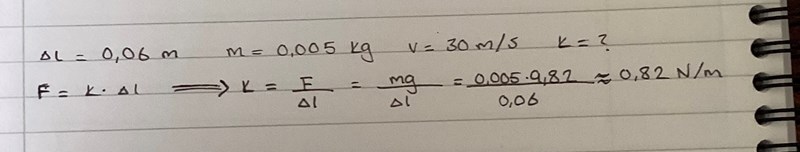 Δl = 0,06 m m = 0,005 kg v = 30 m/s k = ?
F = k · Δl ⟹ k = F/Δl = mg/Δl = 0,005·9,82/0,06 ≈ 0,82 N/m